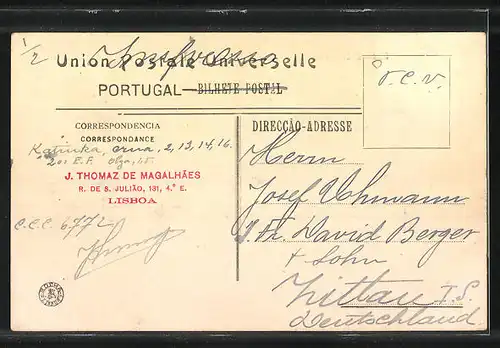 1/2 Impresso
Union Postale Universelle
PORTUGAL — BILHETE POSTAL
T.C.V.
CORRESPONDENCIA
CORRESPONDANCE
DIRECÇÃO-ADRESSE
Katinka, 2, 13, 14, 16.
Olga, 15
J. THOMAZ DE MAGALHÃES
R. DE S. JULIÃO, 131, 4.º E.
LISBOA
C.C.C. 6772
Herrn
Josef
David Berger
& Sohn
Zittau I. S.
Deutschland